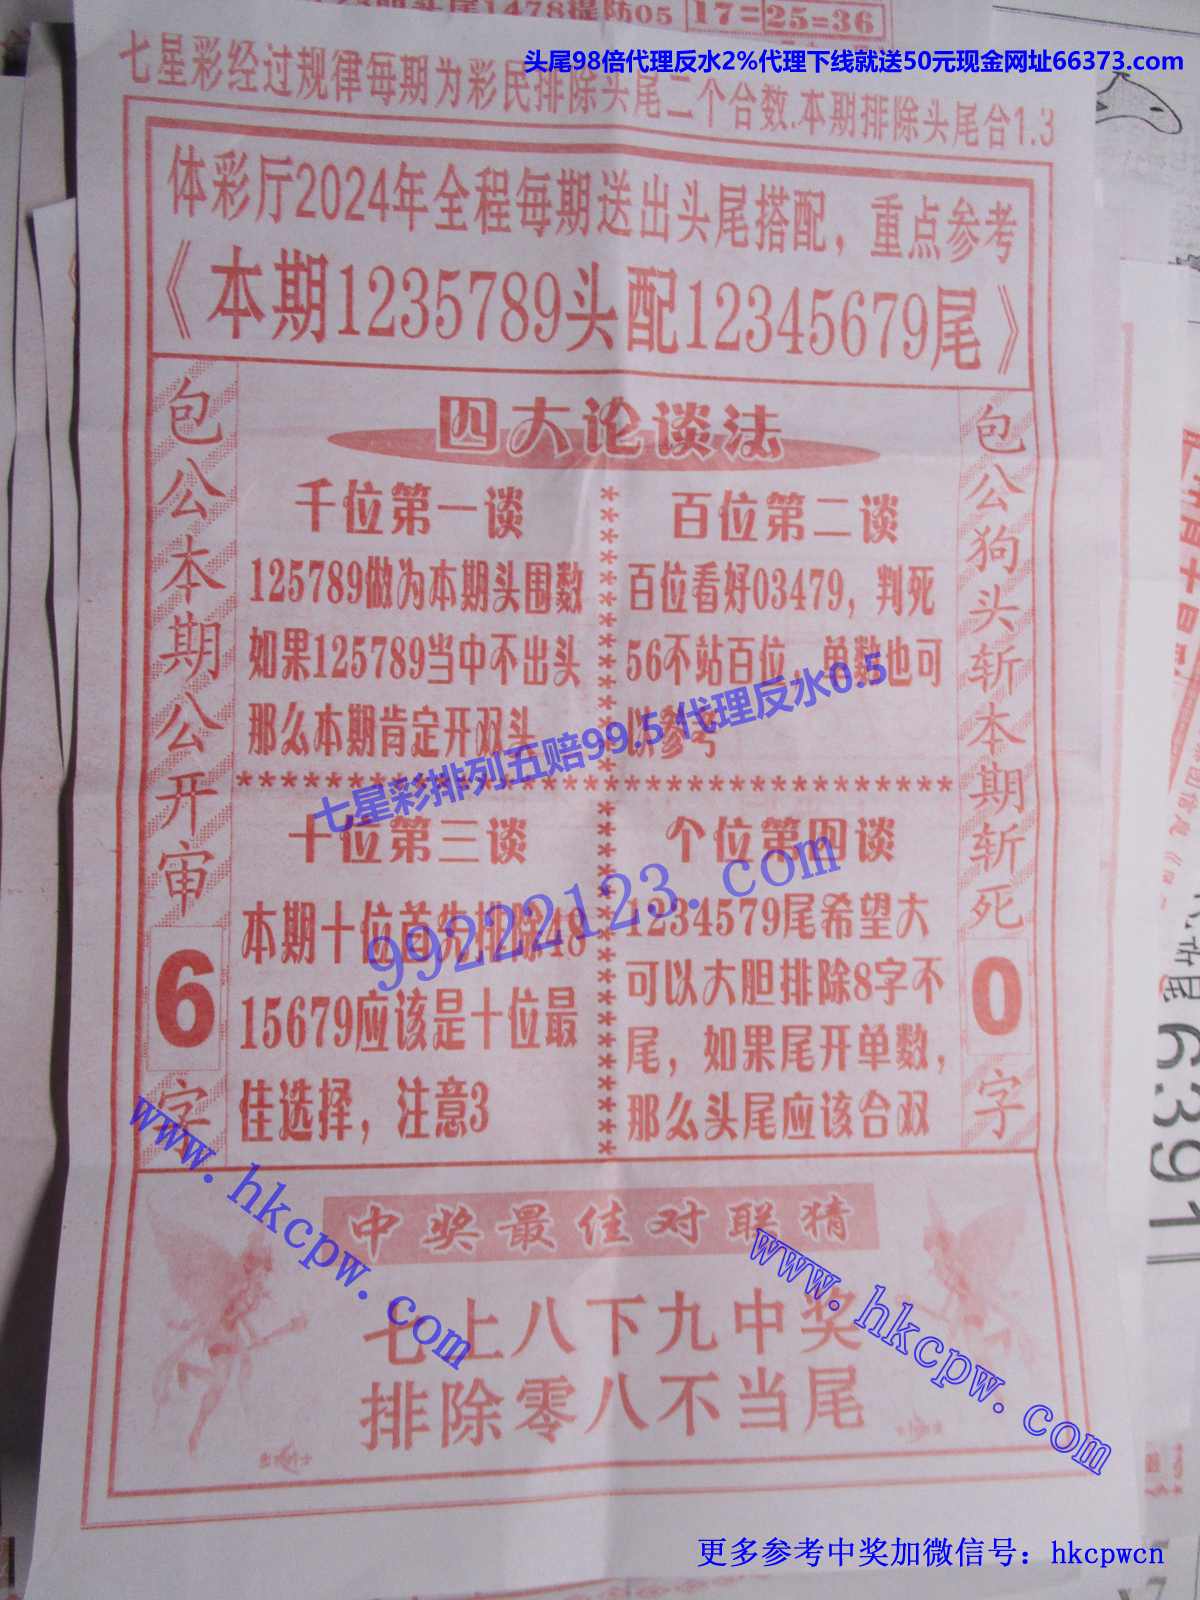 头尾1478提防05 17=25=36
头尾98倍代理反水2%代理下线就送50元现金网址66373.com
七星彩经过规律每期为彩民排除头尾二个合数.本期排除头尾合1.3
体彩厅2024年全程每期送出头尾搭配，重点参考
《本期1235789头配12345679尾》
包公本期公开审6字
四大论谈法
千位第一谈
125789做为本期头围数
如果125789当中不出头
那么本期肯定开双头
百位第二谈
百位看好03479，判死
56不站百位，单数也可
以参考
七星彩排列五赔99.5 代理反水0.5
十位第三谈
本期十位首先排除48
15679应该是十位最
佳选择，注意3
个位第四谈
1234579尾希望大
可以大胆排除8字不
尾，如果尾开单数，
那么头尾应该合双
99222123.com
包公狗头斩本期斩死0字
尾6391
www.hkcpw.com
中奖最佳对联猜
七上八下九中奖
排除零八不当尾
www.hkcpw.com
更多参考中奖加微信号：hkcpwcn